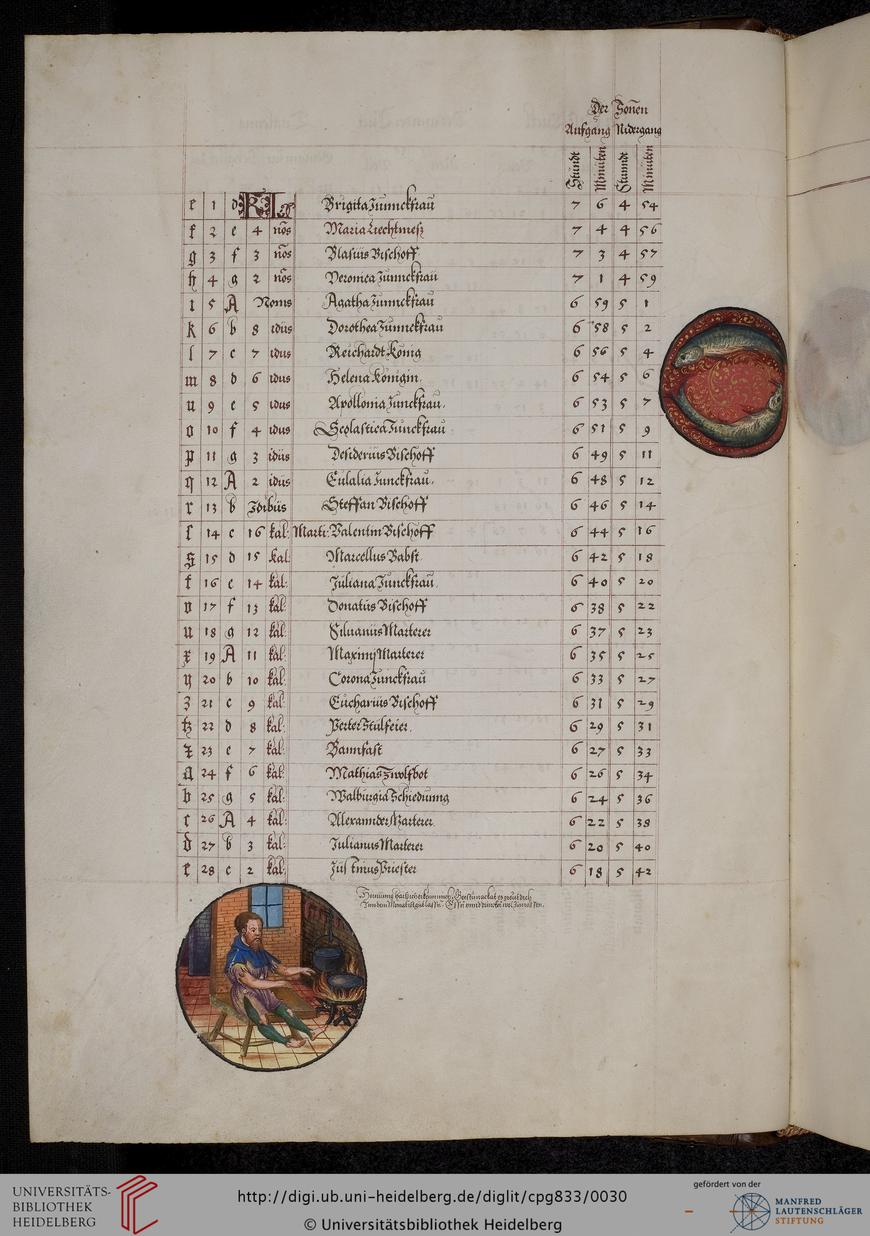 Der Sonen
Aufgang Nidergang
Stundt Minuten Stunndt Minuten
e 1 d Kl Brigita Junnckfrau 7 6 4 54
f 2 e 4 nos Maria Liechtmeß 7 4 4 56
g 3 f 3 nos Blasius Bischoff 7 3 4 57
h 4 g 2 nos Veronica Junnckfrau 7 1 4 59
i 5 A Nonis Agatha Junnckfrau 6 59 5 1
k 6 b 8 idus Dorothea Junnckfrau 6 58 5 2
l 7 c 7 idus Reichardt König 6 56 5 4
m 8 d 6 idus Helena Königin. 6 54 5 6
n 9 e 5 idus Apollonia Junckfrau. 6 53 5 7
o 10 f 4 idus Scolastica Junckfrau 6 51 5 9
p 11 g 3 idus Desiderius Bischoff 6 49 5 11
q 12 A 2 idus Eulalia Junckfrau. 6 48 5 12
r 13 b Idibus Steffan Bischoff 6 46 5 14
s 14 c 16 kal: Marti: Valentin Bischoff 6 44 5 16
S 15 d 15 kal Marcellus Babst 6 42 5 18
t 16 e 14 kal: Juliana Junckfrau 6 40 5 20
v 17 f 13 kal: Donatus Bischoff 6 38 5 22
u 18 g 12 kal: Siluanus Marterer 6 37 5 23
x 19 A 11 kal: Maximj Marterer 6 35 5 25
y 20 b 10 kal: Corona Junckfrau 6 33 5 27
z 21 c 9 kal: Eucharius Bischoff 6 31 5 29
tz 22 d 8 kal: Petter Stulfeier. 6 29 5 31
23 e 7 kal: Bannfast 6 27 5 33
a 24 f 6 kal: Mathias Zwolfbot 6 26 5 34
b 25 g 5 kal: Walburgia Schiedunng 6 24 5 36
c 26 A 4 kal: Alexannder Marterer. 6 22 5 38
d 27 b 3 kal: Julianus Marterer 6 20 5 40
e 28 c 2 kal: Justinus Priester 6 18 5 42
UNIVERSITÄTS-
BIBLIOTHEK
HEIDELBERG
http://digi.ub.uni-heidelberg.de/diglit/cpg833/0030
© Universitätsbibliothek Heidelberg
gefördert von der
MANFRED
LAUTENSCHLÄGER
STIFTUNG